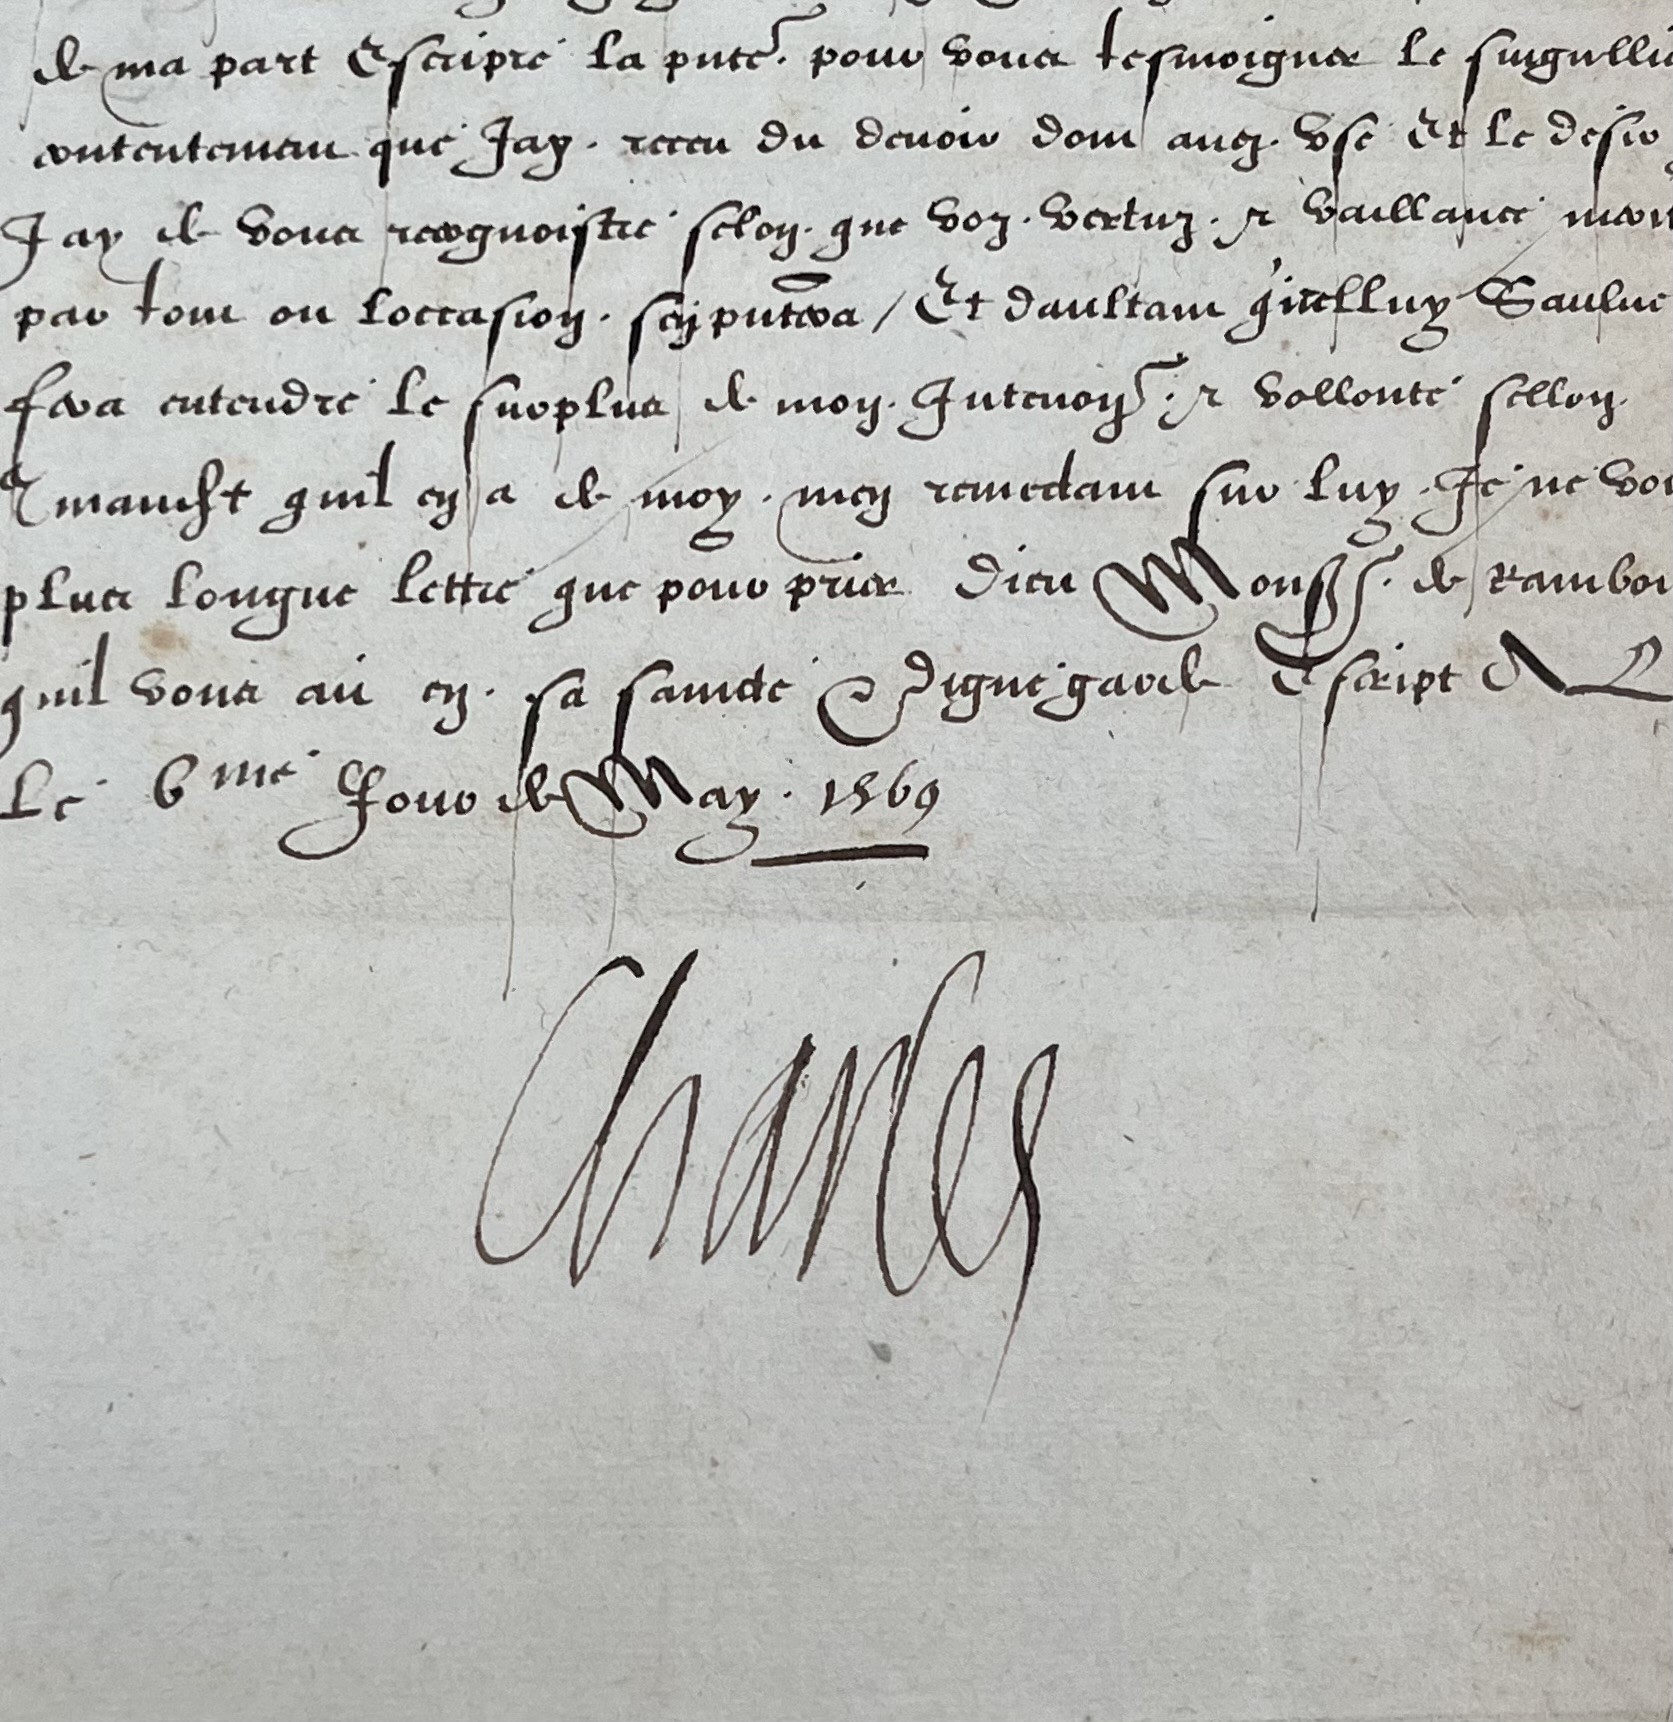 de ma part Escripre la pnte. pour vous tesmoigner le singullie
contentement que Jay. receu du devoir dont avez. vse Et le desir
Jay de vous recognoistre selon. que voz. vertuz. & vaillance merit
par tout ou loccasion. sen pntera / Et daultant quicelluy Sauluc
fera entendre le surplus de mon. Intenon. & vollonte sellon.
quil en a de moy. men remectant sur luy. Je ne vou
plus longue lettre que pour prier Dieu Monsr. de Ramboi
quil vous ait en. sa saincte & digne garde Escript A
Le 6me Jour de May. 1569
Charles